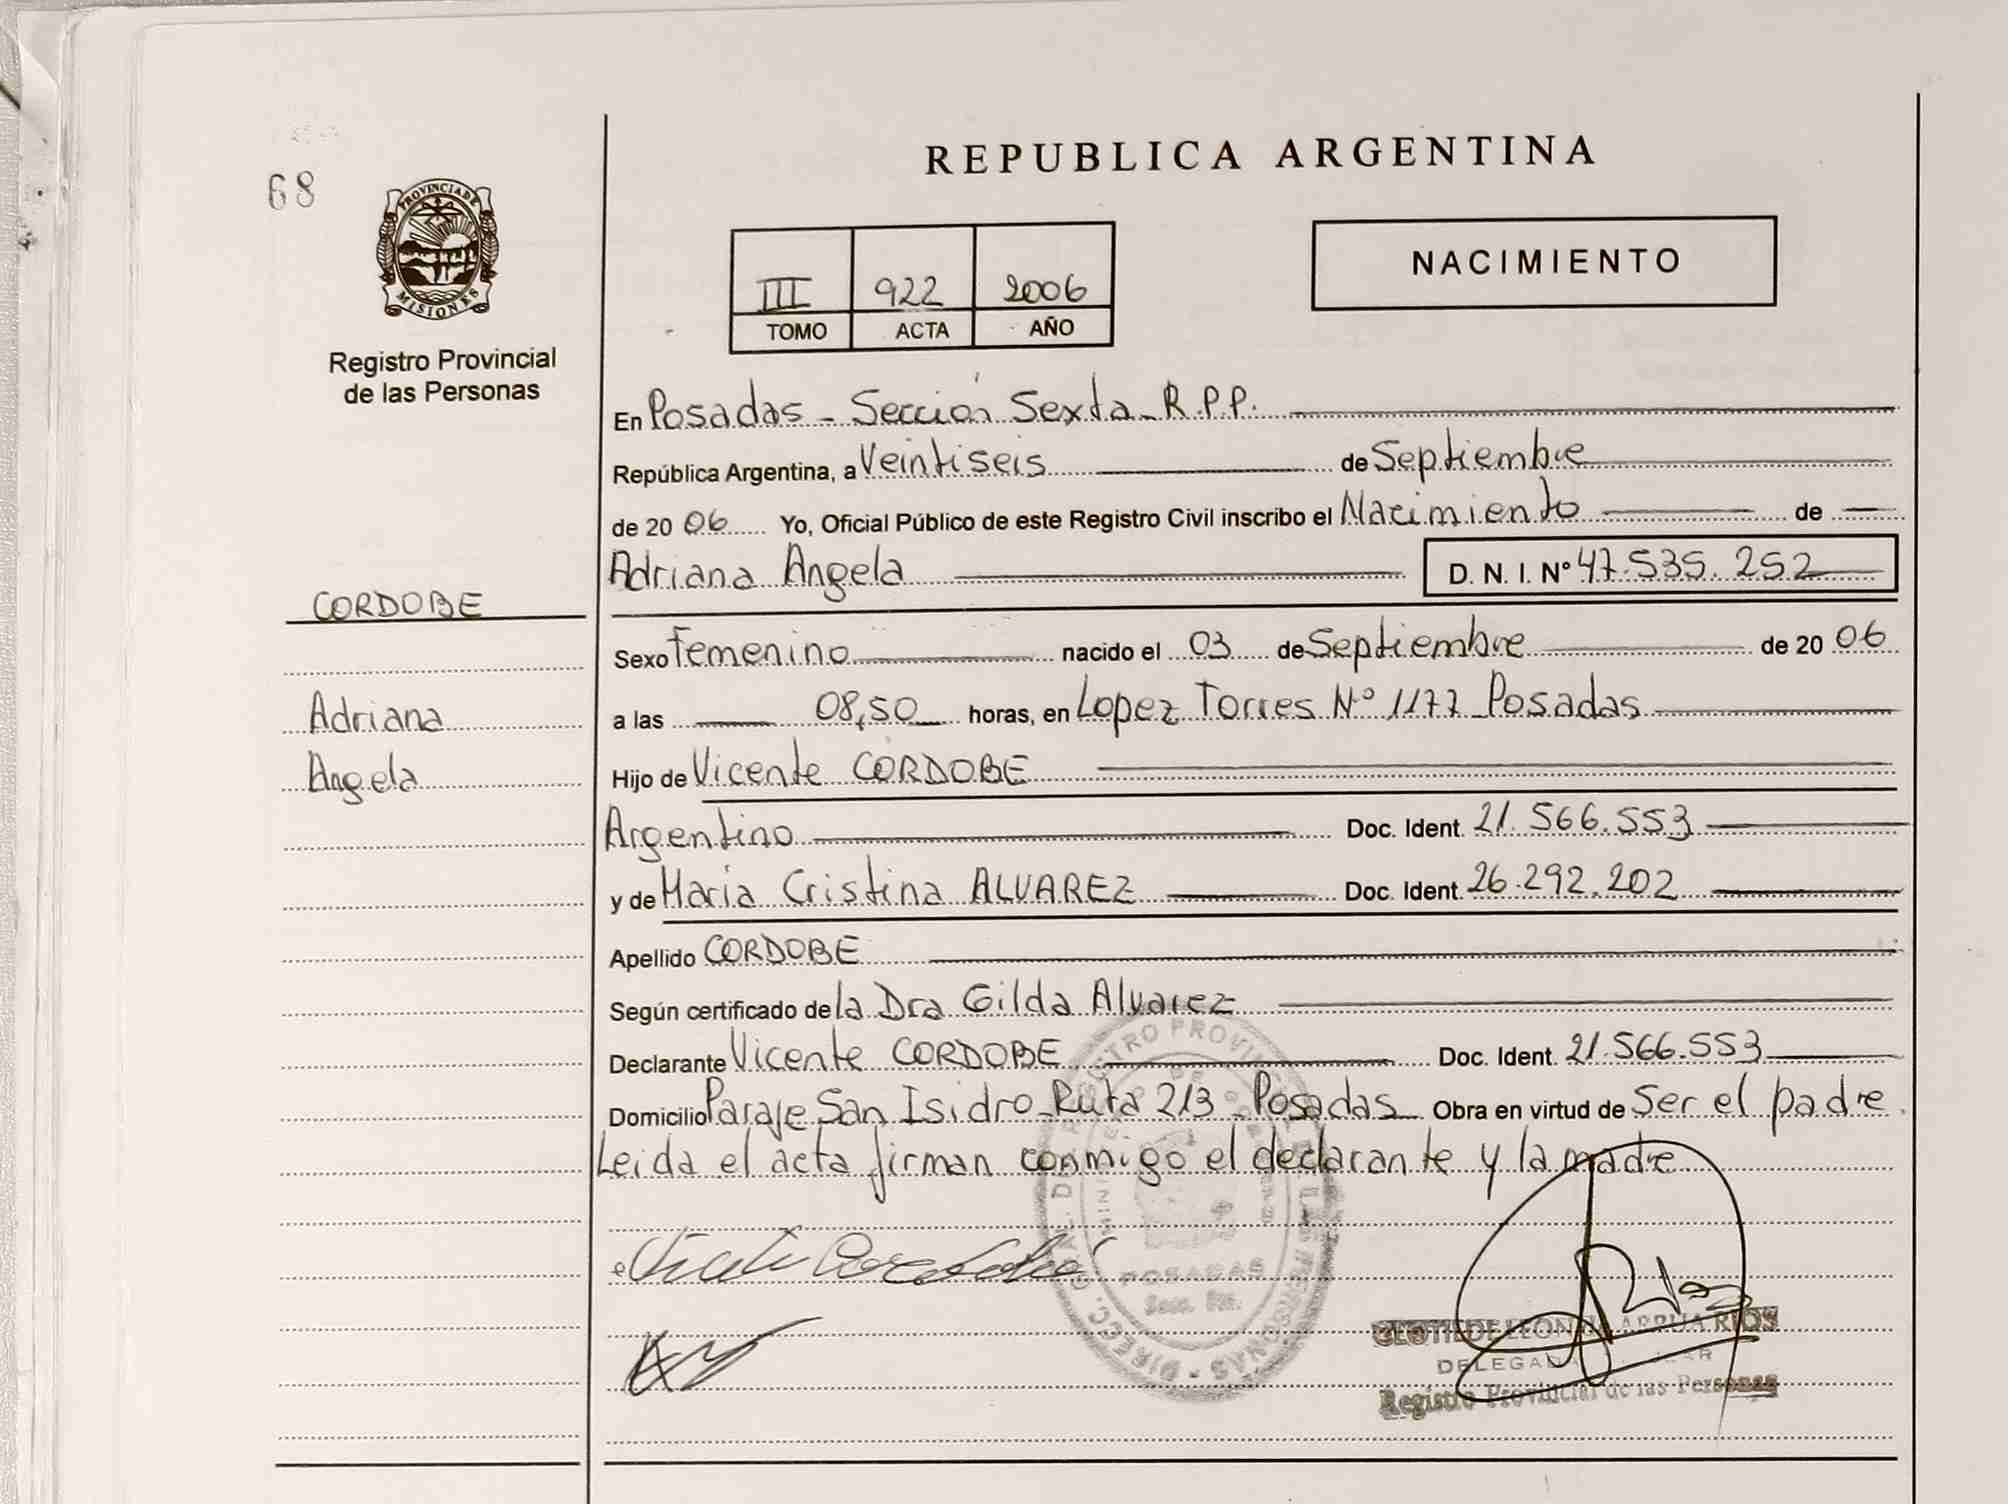 68
PROVINCIA DE
MISIONES
Registro Provincial
de las Personas
REPUBLICA ARGENTINA
III 922 2006
TOMO ACTA AÑO
NACIMIENTO
En Posadas - Sección Sexta R.P.P.
República Argentina, a Veintiseis de Septiembre
de 20 06 Yo, Oficial Público de este Registro Civil inscribo el Nacimiento de
Adriana Angela D. N. I. Nº 47.535.252
CORDOBE
Sexo Femenino nacido el 03 de Septiembre de 20 06
Adriana
a las 08,50 horas, en Lopez Torres Nº 1177 Posadas
Angela
Hijo de Vicente CORDOBE
Argentino Doc. Ident. 21.566.553
y de Maria Cristina ALVAREZ Doc. Ident. 26.292.202
Apellido CORDOBE
Según certificado de la Dra Gilda Alvarez
Declarante Vicente CORDOBE Doc. Ident. 21.566.553
Domicilio Paraje San Isidro Ruta 213 - Posadas Obra en virtud de Ser el padre.
Leida el acta firman conmigo el declarante y la madre
POSADAS
RIOS
Registro Provincial de las Personas